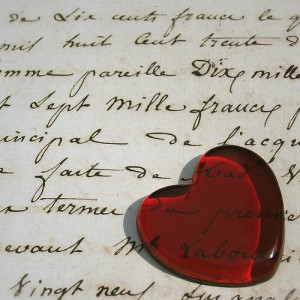 de Six cents francs le q
mil huit Cent trente d
omme pareille Dix mille
t Sept Mille francs p
incipal de l'acqu
faite de
termes du premier
evant Me Labou
Vingt neuf